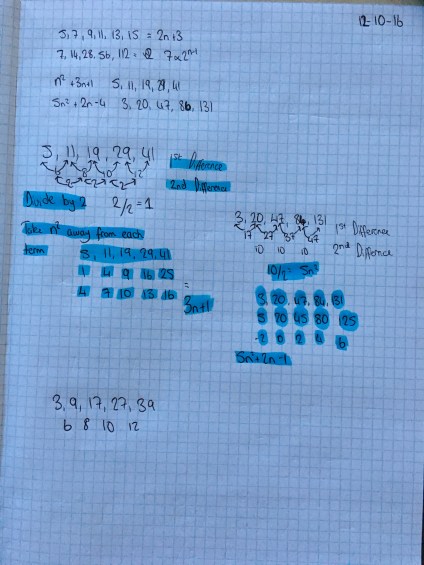 12-10-16
5, 7, 9, 11, 13, 15 = 2n+3
7, 14, 28, 56, 112 = 7×2ⁿ⁻¹
n² +3n+1 5, 11, 19, 29, 41
5n² + 2n - 4 3, 20, 47, 86, 131
5, 11, 19, 29, 41 1st Difference
6 8 10 12
2 2 2 2nd Difference
Divide by 2 2/2 = 1
Take n² away from each
term 5, 11, 19, 29, 41
1 4 9 16 25
4 7 10 13 16 = 3n+1
3, 20, 47, 84, 131 1st Difference
17 27 37 47 2nd Difference
10 10 10
10/2 = 5n²
3, 20, 47, 84, 131
5 20 45 80 125
-2 0 2 4 6
5n² + 2n - 1
3, 9, 17, 27, 39
6 8 10 12